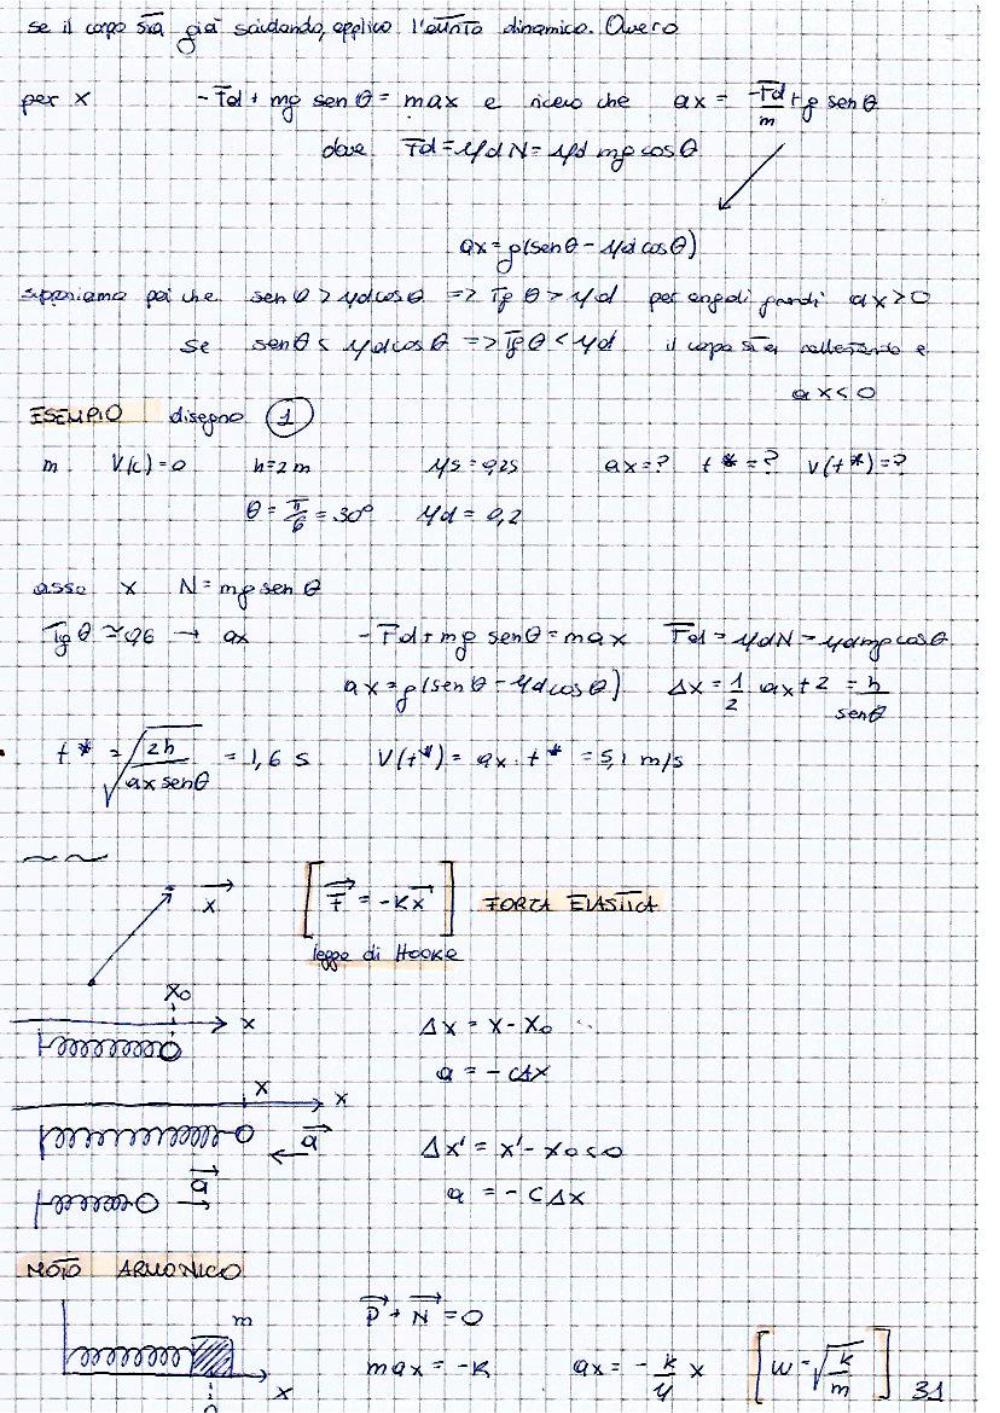 se il corpo sta già scivolando, applico l'attrito dinamico. Ovvero
per x -Fd + mg sen θ = max e ricavo che ax = -Fd/m + g sen θ
dove Fd = μd N = μd mg cos θ
ax = g(sen θ - μd cos θ)
supponiamo poi che sen θ > μd cos θ => Tg θ > μd per angoli grandi ax > 0
se sen θ < μd cos θ => Tg θ < μd il corpo sta rallentando e
ax < 0
ESEMPIO disegno 1
m V(c) = 0 h = 2 m μs = 0,25 ax = ? t* = ? v(t*) = ?
θ = π/6 = 30° μd = 0,2
asse x N = mg sen θ
Tg θ ≃ 0,6 → ax -Fd + mg sen θ = max Fd = μd N = μd mg cos θ
ax = g(sen θ - μd cos θ) Δx = 1/2 axt2 = h/sen θ
t* = √(2h/ax sen θ) = 1,6 s V(t*) = ax · t* = 5,1 m/s
x⃗ [F⃗ = -Kx⃗] FORZA ELASTICA
legge di Hooke
x0
x Δx = x - x0
a = -cΔx
x x
a⃗ Δx' = x' - x0 < 0
a⃗ a = -CΔx
MOTO ARMONICO
m P⃗ + N⃗ = 0
max = -K ax = -k/μ x [W = √k/m] 31
x
0